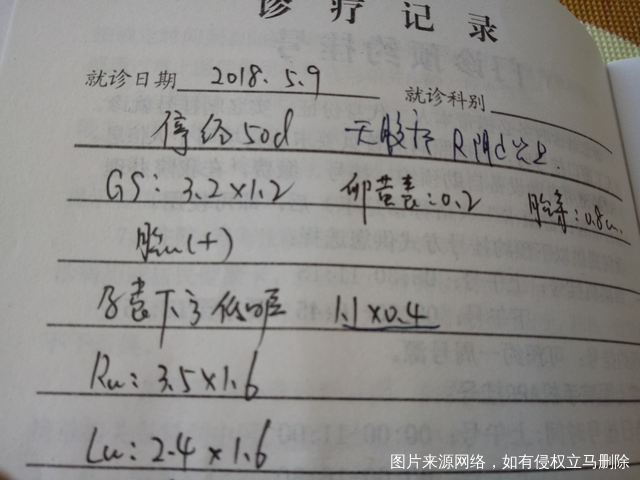 诊疗记录
就诊日期 2018.5.9 就诊科别
停经50d 无腹痛
GS: 3.2×1.2 卵黄囊:0.2 胎芽:0.8cm
胎心(+)
孕囊下方低回声 1.1×0.4
Ru: 3.5×1.6
Lu: 2.4×1.6
图片来源网络，如有侵权立马删除